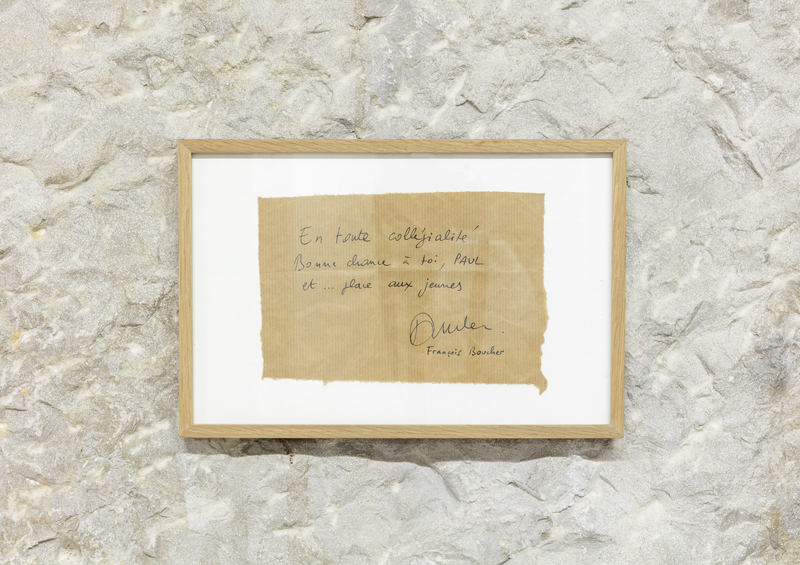 En toute collégialité
Bonne chance à toi, PAUL
et ... place aux jeunes
François Boucher